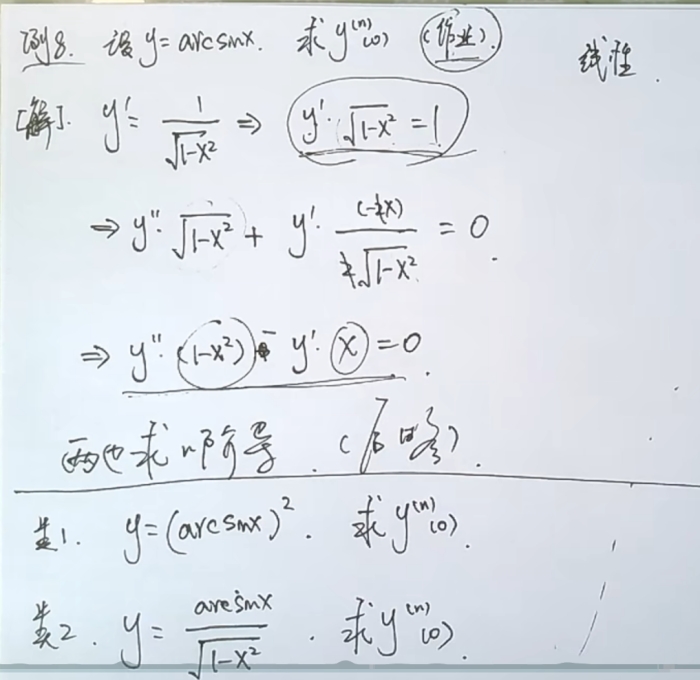 例8. 设y=arcsinx. 求y⁽ⁿ⁾(0) (作业).
线性.
[解]. y'= 1/√(1-x²) ⇒ y'·√(1-x²)=1
⇒ y''·√(1-x²) + y'· (-2x)/(2√(1-x²)) = 0.
⇒ y''·(1-x²) - y'·x=0.
两边求n阶导. (后略).
类1. y=(arcsinx)². 求y⁽ⁿ⁾(0).
类2. y= arcsinx/√(1-x²). 求y⁽ⁿ⁾(0).